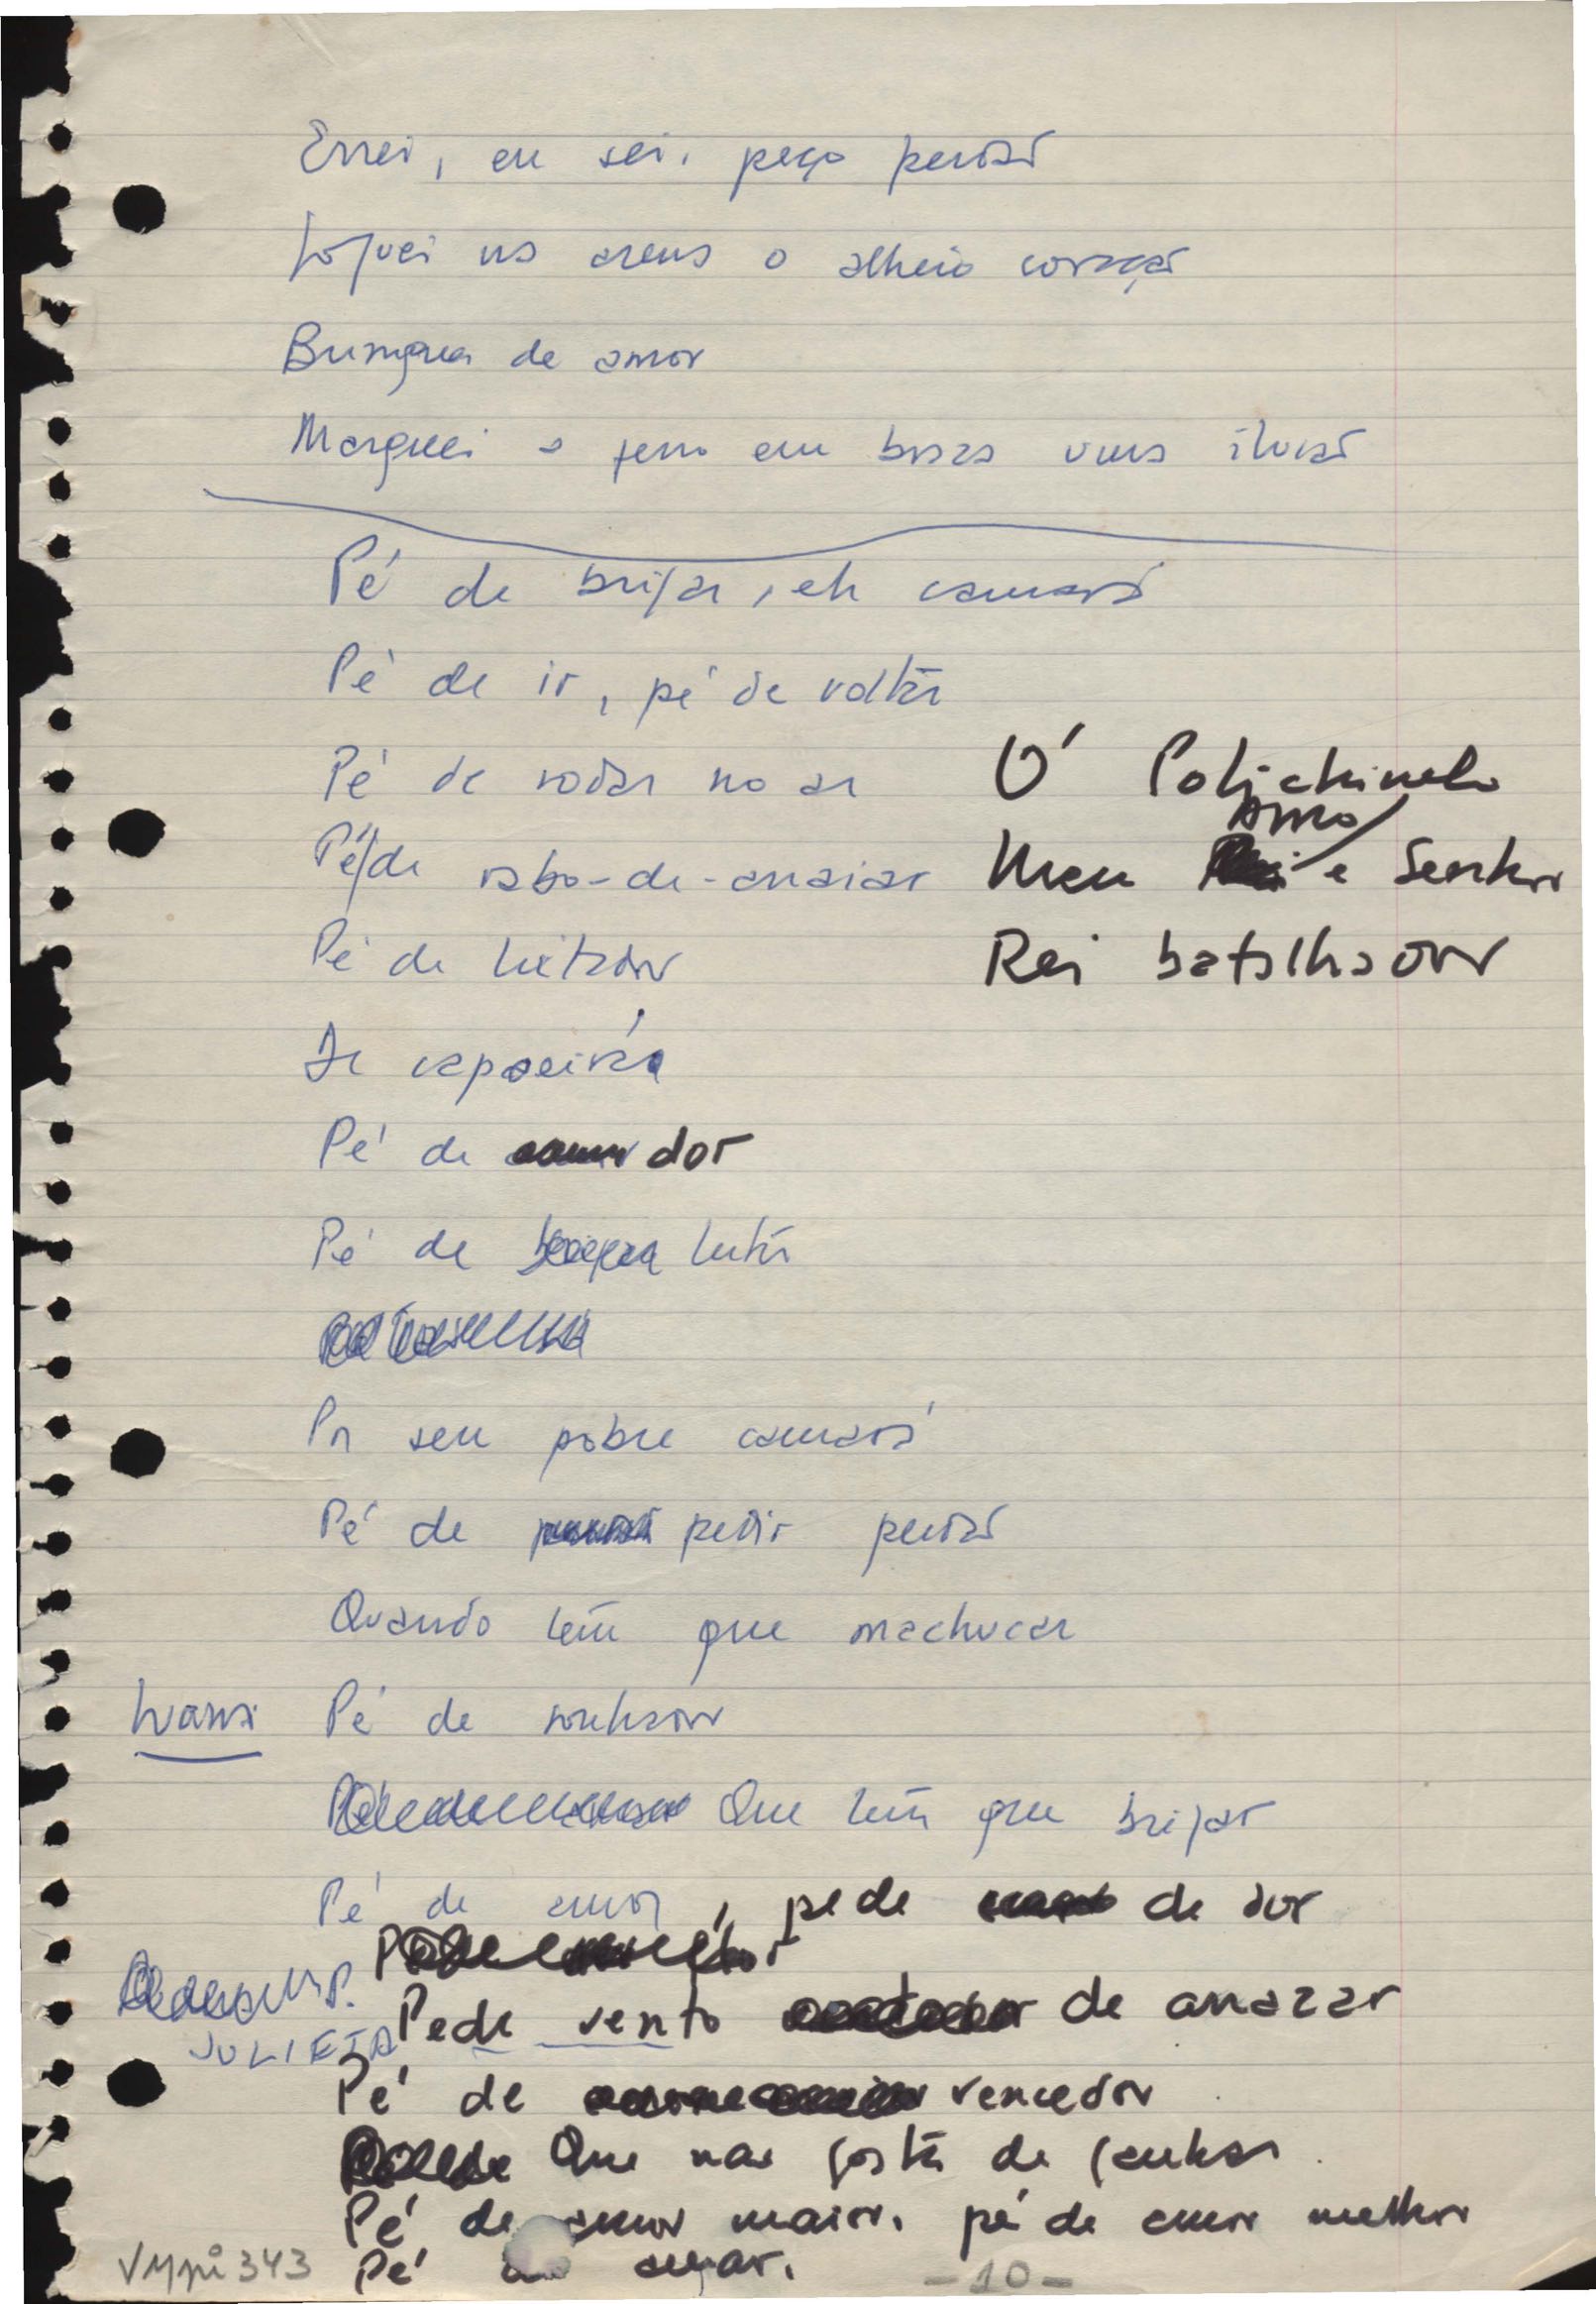 Errei, eu sei, peço perdão
Joguei na arena o alheio coração
de amor
Marquei a ferro em brasa uma ilusão
Pé de brigar, eh camará
Pé de ir, pé de voltar
Pé de rodar no ar
Pé de rabo-de-arraiar
Pé de lutador
De capoeira
Pé de dor
Pé de lutar
Pr seu pobre camará
Pé de pedir perdão
Quando tem que machucar
Pé de sonhador
Que tem que brigar
Pé de amor, pede de dor
Pede vento de arrazar
JULIETA
Pé de vencedor
Que não gosta de ganhar.
Pé de amor maior, pé de amor melhor
Pé amar.
Ó Polichinelo
Amo
Meu e Senhor
Rei batalhador
VMpi343
-10-